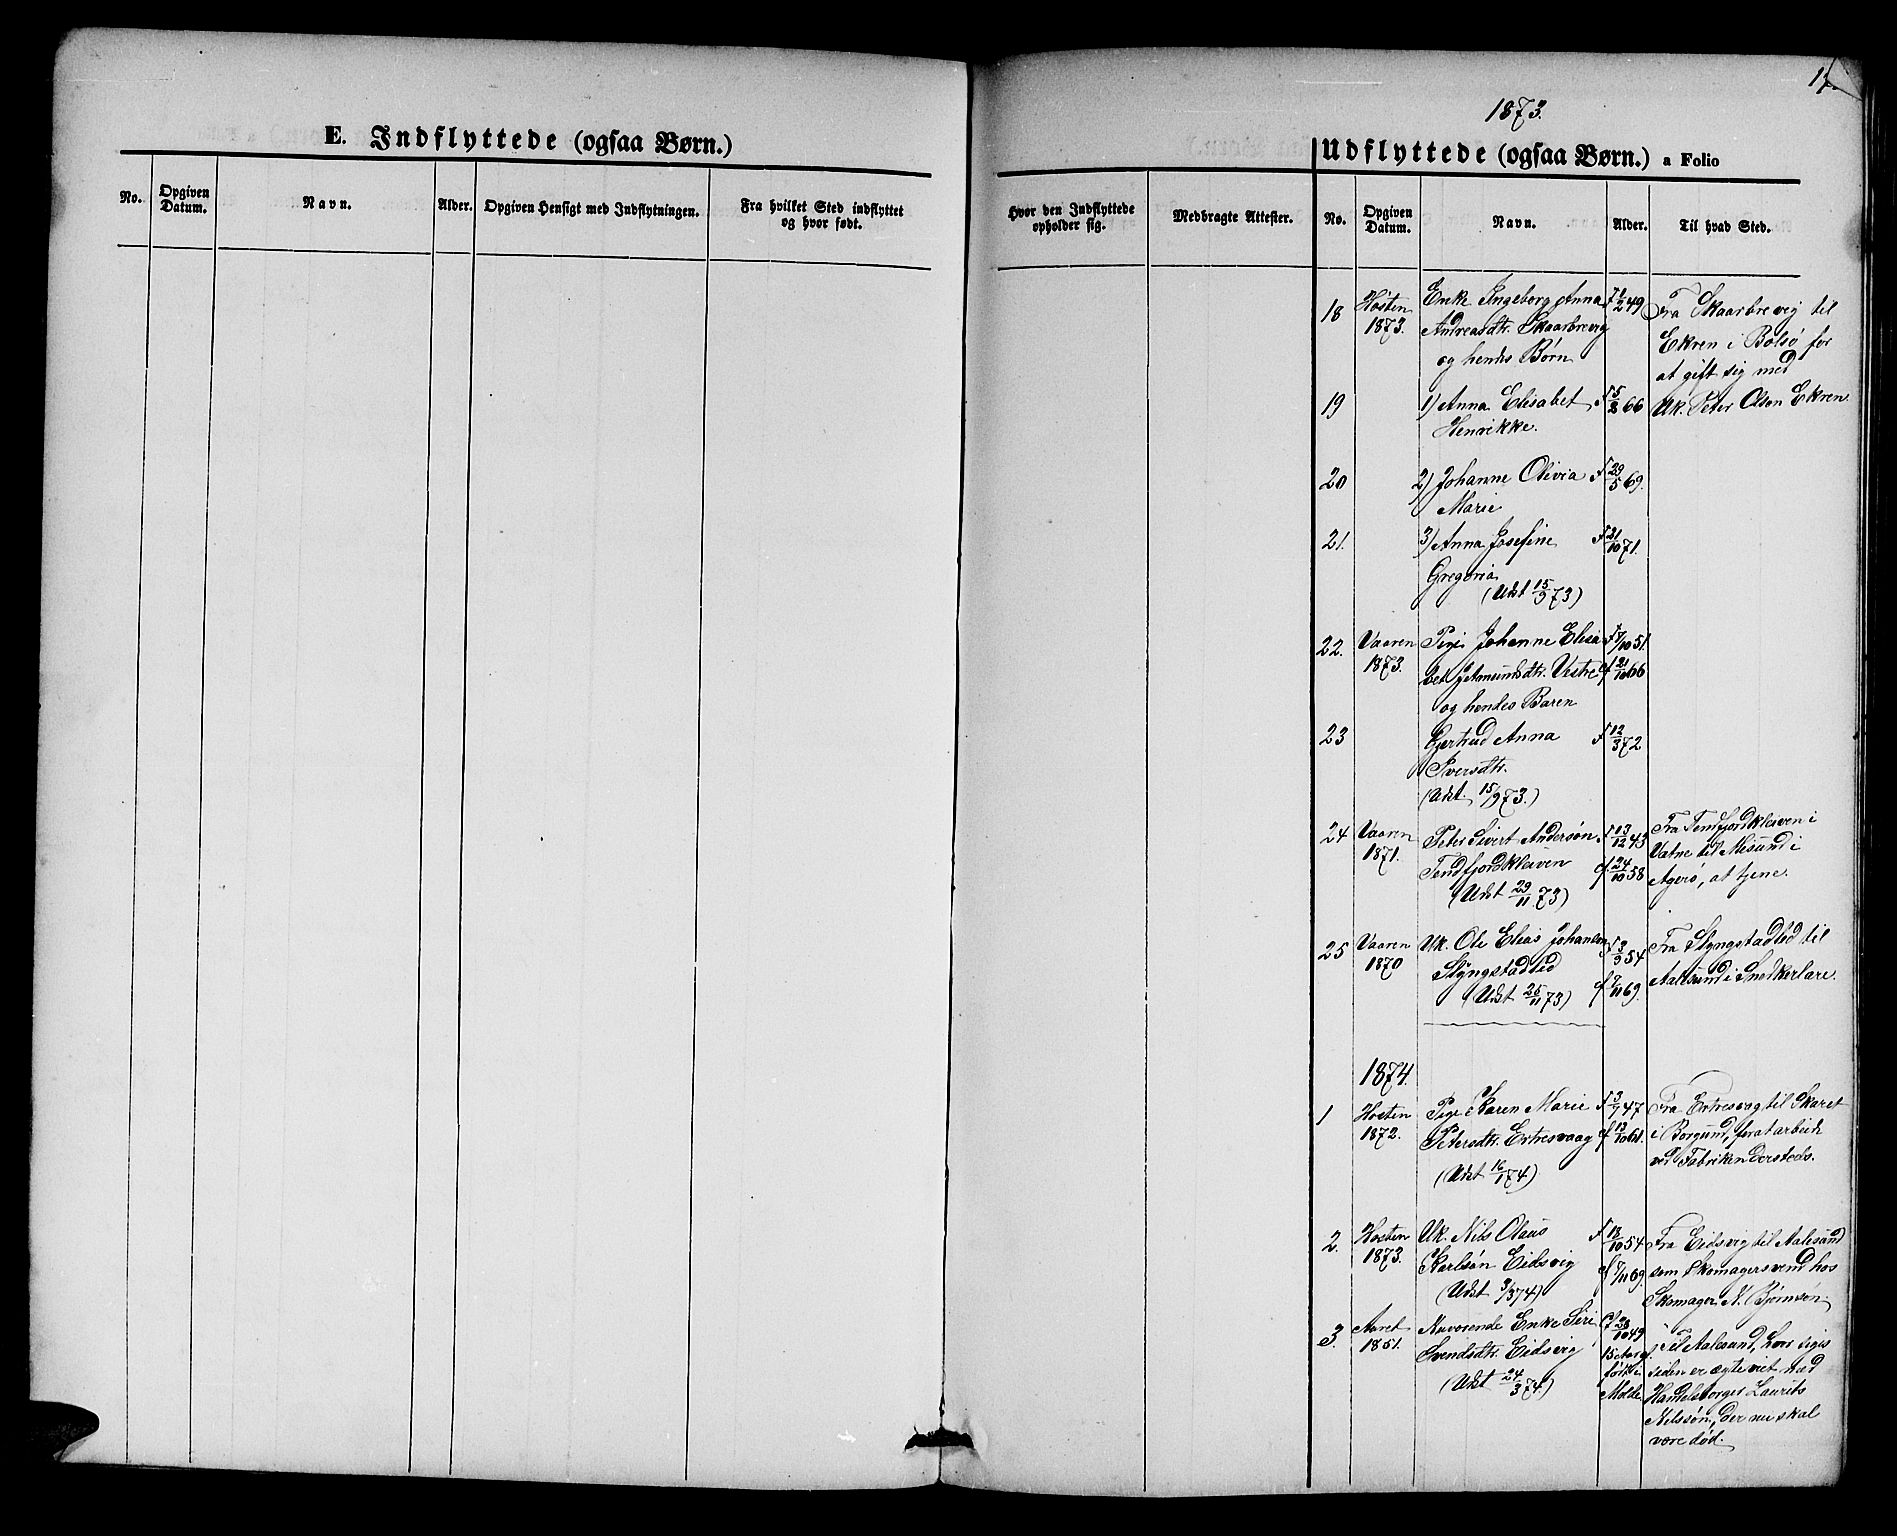 E. Indflyttede (ogsaa Børn.)
No.
Opgiven Datum.
Navn.
Alder.
Opgiven Hensigt med Indflytningen.
Fra hvilket Sted indflyttet og hvor født.
Hvor den Indflyttede opholder sig.
Medbragte Attester.
1873.
Udflyttede (ogsaa Børn.) a Folio
No.
Opgiven Datum.
Navn.
Alder.
Til hvad Sted.
18 Høsten Enke Ingeborg Anna 49 Fra Skaarbrevig til
1873. Andreasdtr. Skaarbrevig Ekren i Bolsø for
og hendes Børn at gift sig med
19 1) Anna Elisabet F 5/2 66 Uk. Peter Olsen Ekren.
Henrikke.
20 2) Johanne Olivia F 29/5 69.
Marie
21. 3) Anna Josefine F 21/10 71.
Gregoria
(Udst 15/9 73)
22. Vaaren Pige Johanne Elisa 7/10 51.
1873. bet Amundsdtr. Vestre cf 21/10 66
og hendes Baren
23 Gjertrud Anna F 12/3 72
Iversdtr.
(Udst. 15/9 73.)
24 Vaaren Peter Sivert Andersøn F 13/12 43 Fra Tendfjordkleiven i
1871. Tendfjordkleiven cf 24/10 58 Vatne til Misund i
(Udst 29/11 73) Agerø, at tjene.
25 Vaaren Uk. Ole Elias Johansen F 3/9 54 Fra Slyngstadlid til
1870 Slyngstadlid cf 7/11 69. Aalesund i Snedkerlære.
(Udst 25/11 73)
1874.
1 Høsten Pige Karen Marie F 3/7 47 Fra Ertresvaag til Skaret
1872. Petersdtr. Ertresvaag cf 13/10 61. i Borgund, for at arbeide
(Udst 16/1 74) ved Fabriken dersteds.
2. Høsten Uk. Nils Olaus F 12/10 54 Fra Eidsvig til Aalesund
1873. Karlsøn Eidsvig cf 7/11 69. som Skomagersvend hos
(Udst 3/3 74) Skomager N. Bjørnson.
3. Aaret Nuværende Enke Siri cf 28/10 49 Til Aalesund, hvor sigis
1851. Svendsdtr. Eidsvig 15 Aar g. siden er ægteviet med
(Udst 24/3 74) født i Handelsborger Laurits
Molde Nilssøn, der nu skal
være død.